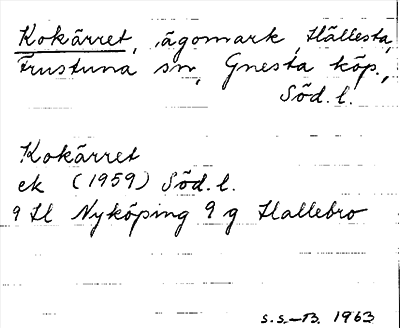 Kokärret, ägomark, Hållesta,
Frustuna sn, Gnesta köp.,
Söd. l.
Kokärret
ek (1959) Söd. l.
9 H Nyköping 9 g Hållebro
S.S.-B. 1963